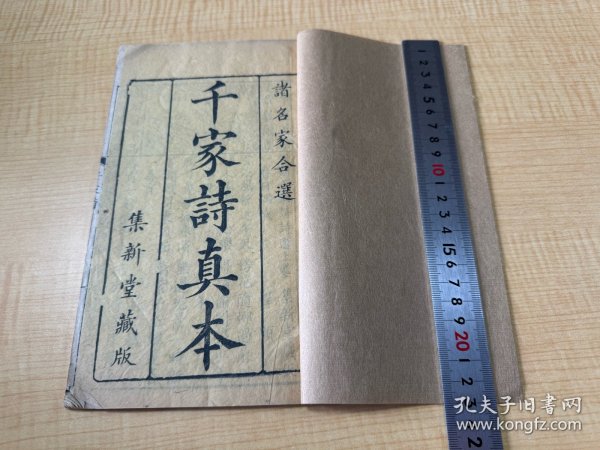 諸名家合選
千家詩真本
集新堂藏版
1 2 3 4 5 6 7 8 9 10 1 2 3 4 15 6 7 8 9 20 1 2 3 2
孔夫子旧书网
www.kongfz.com